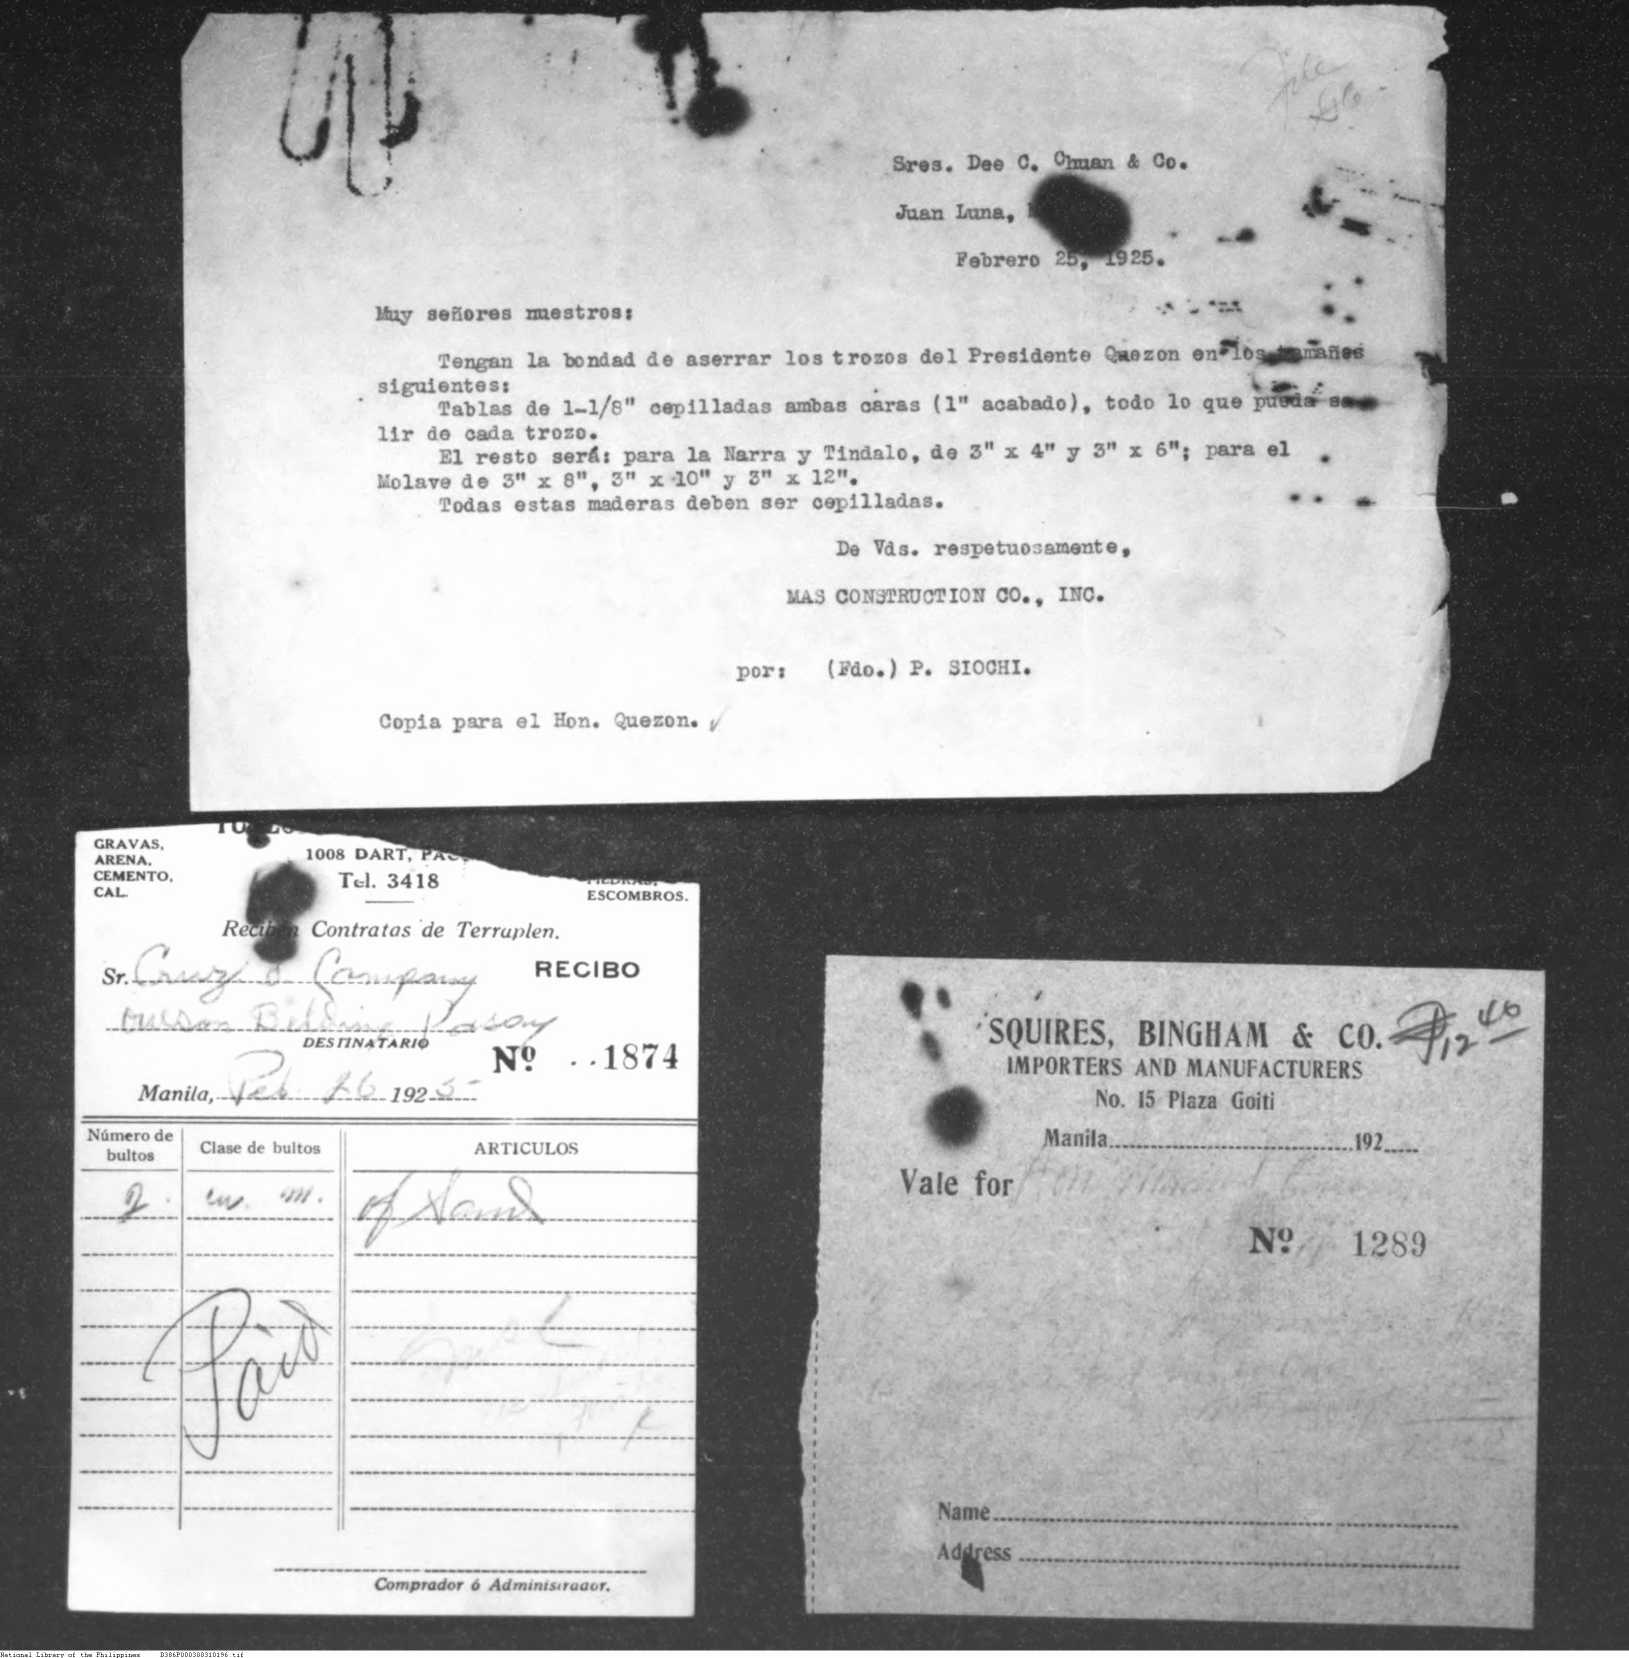 File
Sres. Dee C. Chuan & Co.
Juan Luna,
Febrero 25, 1925.
Muy señores nuestros:
Tengan la bondad de aserrar los trozos del Presidente Quezon en los tamaños
siguientes:
Tablas de 1-1/8" cepilladas ambas caras (1" acabado), todo lo que pueda sa-
lir de cada trozo.
El resto será: para la Narra y Tindalo, de 3" x 4" y 3" x 6"; para el
Molave de 3" x 8", 3" x 10" y 3" x 12".
Todas estas maderas deben ser cepilladas.
De Vds. respetuosamente,
MAS CONSTRUCTION CO., INC.
por: (Fdo.) P. SIOCHI.
Copia para el Hon. Quezon.
GRAVAS,
ARENA,
CEMENTO,
CAL.
1008 DART,
Tel. 3418
PIEDRAS,
ESCOMBROS.
Reciben Contratas de Terraplen.
Sr. Cruz & Company
RECIBO
Pasay
DESTINATARIO
Nº 1874
Manila, Feb. 26 1925
Número de bultos
Clase de bultos
ARTICULOS
2 cu. m. of Sand
Paid
Comprador ó Administrador.
SQUIRES, BINGHAM & CO.
₱12.40
IMPORTERS AND MANUFACTURERS
No. 15 Plaza Goiti
Manila 192
Vale for Hon
Nº 1289
Name
Address
National Library of the Philippines D386P000300310196.tif